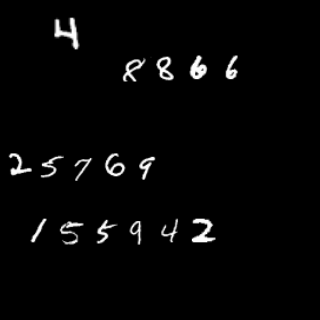 4
8866
25769
155942